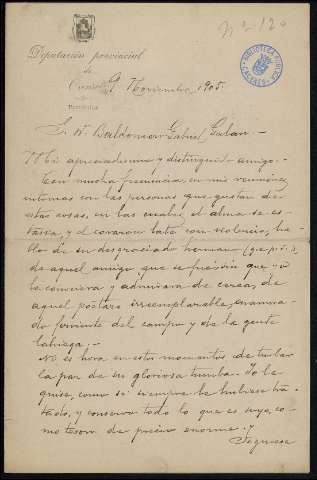 nº 120
Diputación provincial
de
Presidencia
9 Noviembre 1905.
BIBLIOTECA PUBLICA
CACERES
S. D. Baldomero Gabriel Galan.-
Mi apreciadisimo y distinguido amigo.-
Con mucha frecuencia, en mis reuniones
intimas con las personas que gustan de
estas cosas, en las cuales el alma se es-
y el corazon late con violencia, ha-
blo de su desgraciado hermano (q.e.p.d.),
de aquel amigo que que yo
le conociera y admirara de cerca, de
aquel poeta irreemplazable, enamora-
do ferviente del campo y de la gente
labriega.-
No es hora en estos momentos de turbar
la paz de su gloriosa tumba. Yo le
quise, como si siempre le hubiese tra-
tado, y conservo todo lo que es suyo, co-
mo tesoro de precio enorme. y